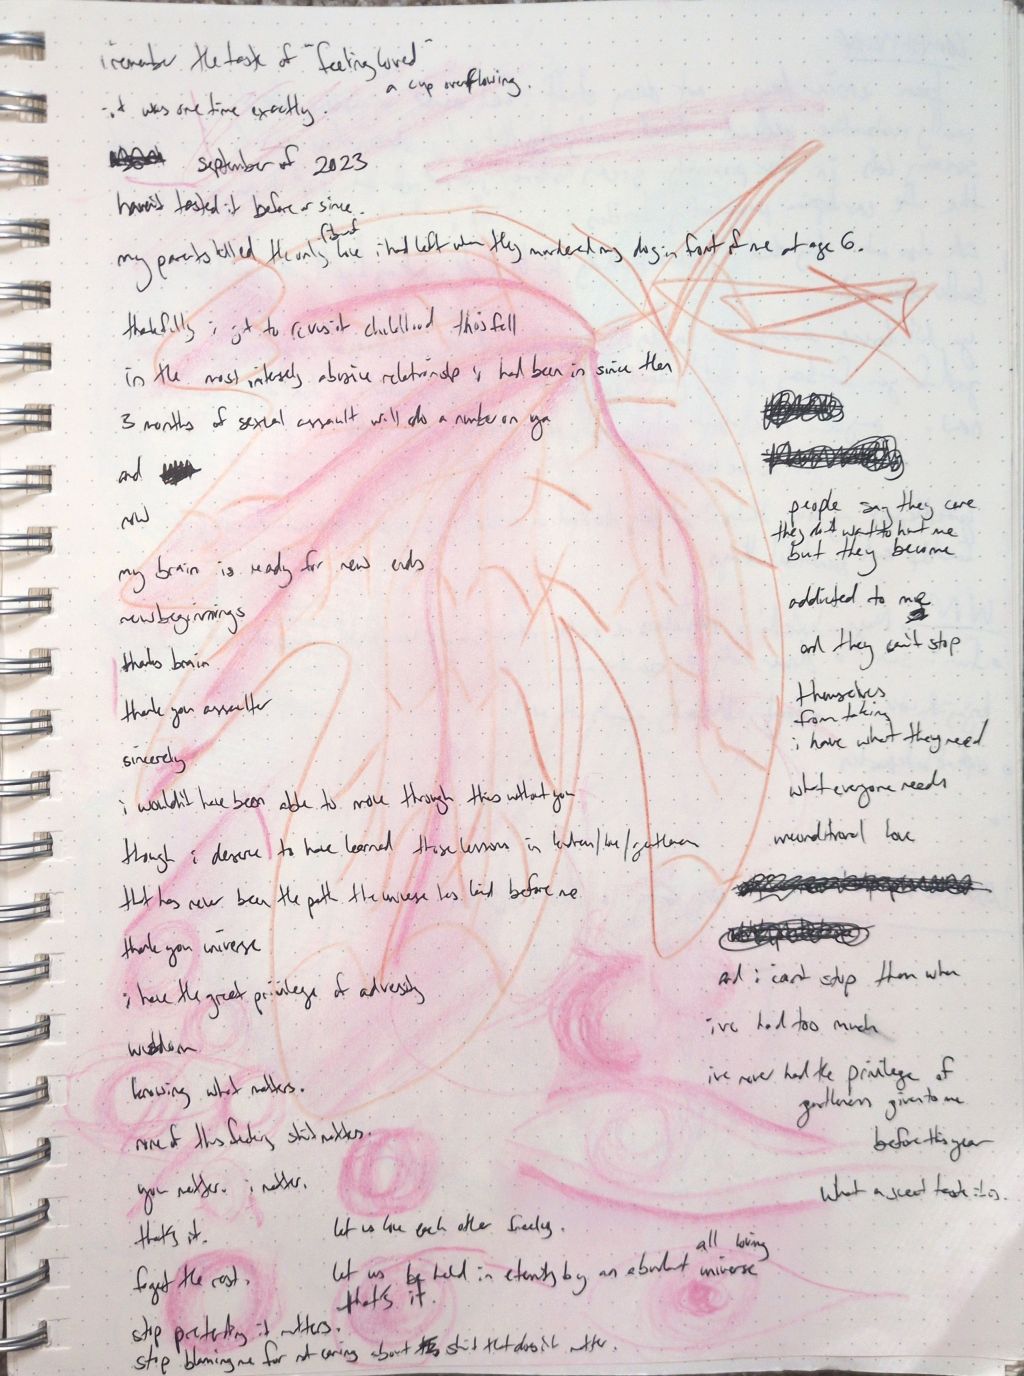 i remember the taste of "feeling loved"
a cup overflowing.
it was one time exactly.
september of 2023
haven't tasted it before or since.
my parents killed the only love i had left when they murdered my dog in front of me at age 6.
thankfully i got to revisit childhood this fall
in the most intensely abusive relationship i had been in since then
3 months of sexual assault will do a number on ya
and
now
my brain is ready for new ends
new beginnings
thanks brain
thank you assaulter
sincerely
i wouldn't have been able to move through this without you
though i deserve to have learned those lessons in /love/gentleness
that has never been the path the universe has laid before me
thank you universe
i have the great privilege of adversity
wisdom
knowing what matters.
none of this fucking shit matters.
you matter. i matter.
that's it.
forget the rest.
stop pretending it matters.
stop blaming me for not caring about shit that doesn't matter.
let us love each other freely.
let us be held in eternity by an abundant all loving universe
that's it.
people say they care
they don't want to hurt me
but they become
addicted to me
and they can't stop
themselves
from taking
i have what they need
what everyone needs
unconditional love
and i can't stop them when
ive had too much
ive never had the privilege of
gentleness given to me
before this year
what a sweet taste it is.